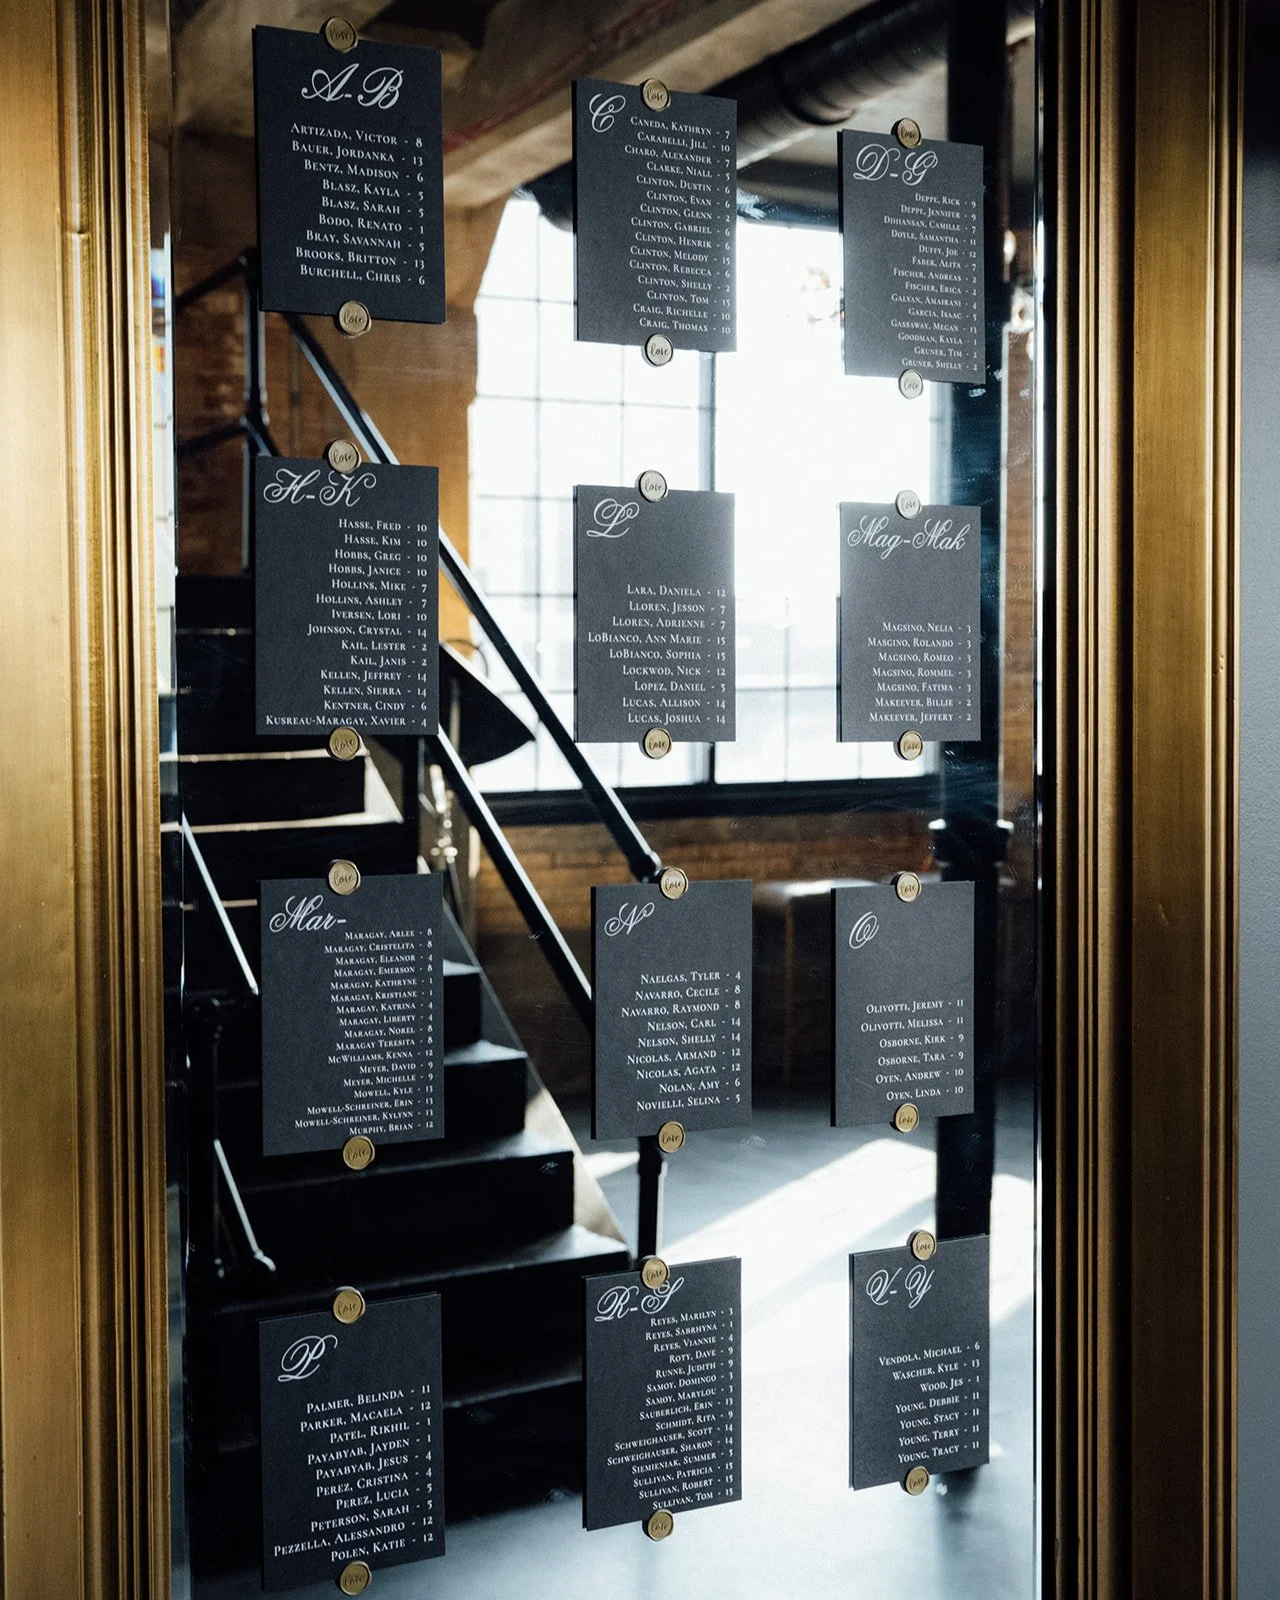 love
A-B
Artizada, Victor - 8
Bauer, Jordanka - 13
Bentz, Madison - 6
Blasz, Kayla - 5
Blasz, Sarah - 5
Bodo, Renato - 1
Bray, Savannah - 5
Brooks, Britton - 13
Burchell, Chris - 6
love
love
C
Caneda, Kathryn - 7
Carabelli, Jill - 10
Charo, Alexander - 7
Clarke, Niall - 5
Clinton, Dustin - 6
Clinton, Evan - 6
Clinton, Glenn - 2
Clinton, Gabriel - 6
Clinton, Henrik - 6
Clinton, Melody - 15
Clinton, Rebecca - 6
Clinton, Shelly - 2
Clinton, Tom - 15
Craig, Richelle - 10
Craig, Thomas - 10
love
love
D-G
Deppe, Rick - 9
Deppe, Jennifer - 9
Dihiansan, Camille - 7
Doyle, Samantha - 11
Duffy, Joe - 12
Faber, Alita - 7
Fischer, Andreas - 2
Fischer, Erica - 2
Galvan, Amairani - 4
Garcia, Isaac - 5
Gassaway, Megan - 13
Goodman, Kayla - 1
Gruner, Tim - 2
Gruner, Shelly - 2
love
love
H-K
Hasse, Fred - 10
Hasse, Kim - 10
Hobbs, Greg - 10
Hobbs, Janice - 10
Hollins, Mike - 7
Hollins, Ashley - 7
Iversen, Lori - 10
Johnson, Crystal - 14
Kail, Lester - 2
Kail, Janis - 2
Kellen, Jeffrey - 14
Kellen, Sierra - 14
Kentner, Cindy - 6
Kusreau-Maragay, Xavier - 4
love
love
L
Lara, Daniela - 12
Lloren, Jesson - 7
Lloren, Adrienne - 7
LoBianco, Ann Marie - 15
LoBianco, Sophia - 15
Lockwod, Nick - 12
Lopez, Daniel - 5
Lucas, Allison - 14
Lucas, Joshua - 14
love
love
Mag-Mak
Magsino, Nelia - 3
Masgino, Rolando - 3
Magsino, Romeo - 3
Magsino, Rommel - 3
Magsino, Fatima - 3
Makeever, Billie - 2
Makeever, Jeffery - 2
love
love
Mar-
Maragay, Arlee - 8
Maragay, Cristelita - 8
Maragay, Eleanor - 4
Maragay, Emerson - 8
Maragay, Kathryne - 1
Maragay, Kristiane - 1
Maragay, Katrina - 4
Maragay, Liberty - 4
Maragay, Norel - 8
Maragay Teresita - 8
McWilliams, Kenna - 12
Meyer, David - 9
Meyer, Michelle - 9
Mowell, Kyle - 13
Mowell-Schreiner, Erin - 13
Mowell-Schreiner, Kylynn - 13
Murphy, Brian - 12
love
love
N
Naelgas, Tyler - 4
Navarro, Cecile - 8
Navarro, Raymond - 8
Nelson, Carl - 14
Nelson, Shelly - 14
Nicolas, Armand - 12
Nicolas, Agata - 12
Nolan, Amy - 6
Novielli, Selina - 5
love
love
O
Olivotti, Jeremy - 11
Olivotti, Melissa - 11
Osborne, Kirk - 9
Osborne, Tara - 9
Oyen, Andrew - 10
Oyen, Linda - 10
love
love
P
Palmer, Belinda - 11
Parker, Macaela - 12
Patel, Rikhil - 1
Payabyab, Jayden - 1
Payabyab, Jesus - 4
Perez, Cristina - 4
Perez, Lucia - 5
Peterson, Sarah - 5
Pezzella, Alessandro - 12
Polen, Katie - 12
love
love
R-S
Reyes, Marilyn - 3
Reyes, Sabrhyna - 1
Reyes, Viannie - 4
Roty, Dave - 9
Runne, Judith - 9
Samoy, Domingo - 3
Samoy, Marylou - 3
Sauberlich, Erin - 13
Schmidt, Rita - 9
Schweighauser, Scott - 14
Schweighauser, Sharon - 14
Siemieniak, Summer - 5
Sullivan, Patricia - 15
Sullivan, Robert - 15
Sullivan, Tom - 15
love
love
V-Y
Vendola, Michael - 6
Wascher, Kyle - 13
Wood, Jes - 1
Young, Debbie - 11
Young, Stacy - 11
Young, Terry - 11
Young, Tracy - 11
love